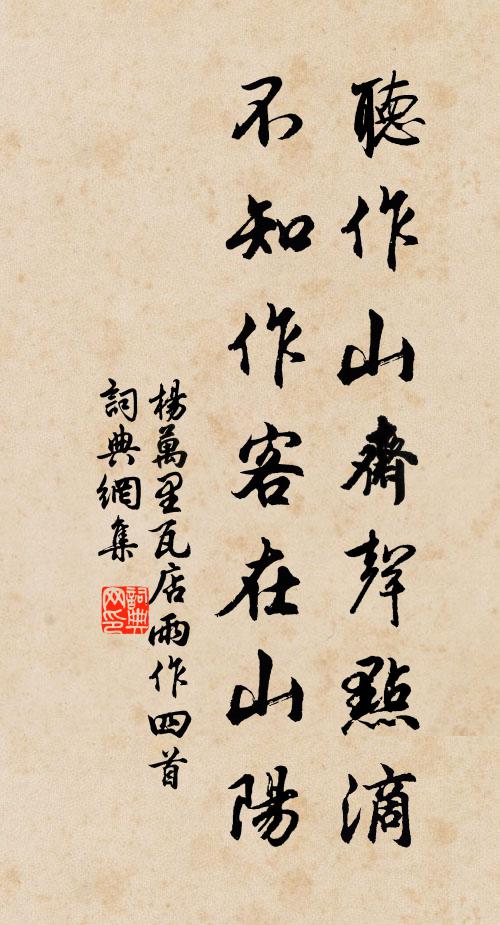 聽作山齋聲點滴
不知作客在山陽
楊萬里瓦店雨作四首
詞典網集
詞典网印